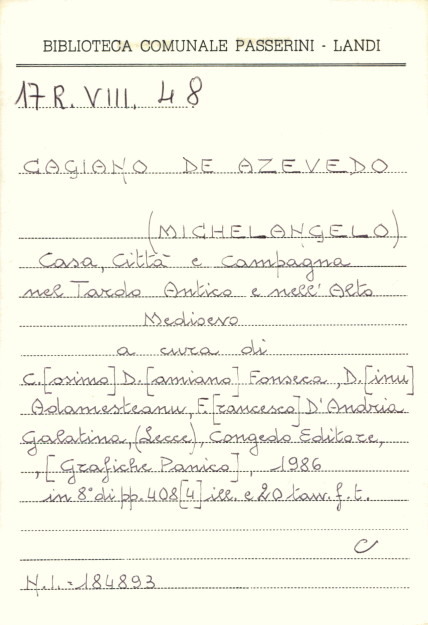 BIBLIOTECA COMUNALE PASSERINI - LANDI
17 R. VIII. 48
CAGIANO DE AZEVEDO
(MICHELANGELO)
Casa, Città e Campagna
nel Tardo Antico e nell'Alto
Medioevo
a cura di
C.[osimo] D.[amiano] Fonseca, D.[inu]
Adamesteanu, F.[rancesco] D'Andria
Galatina, (Lecce), Congedo Editore,
, [Grafiche Panico], 1986
in 8° di pp. 408[4] ill. e 20 tav. f. t.
C
N.I. = 184893